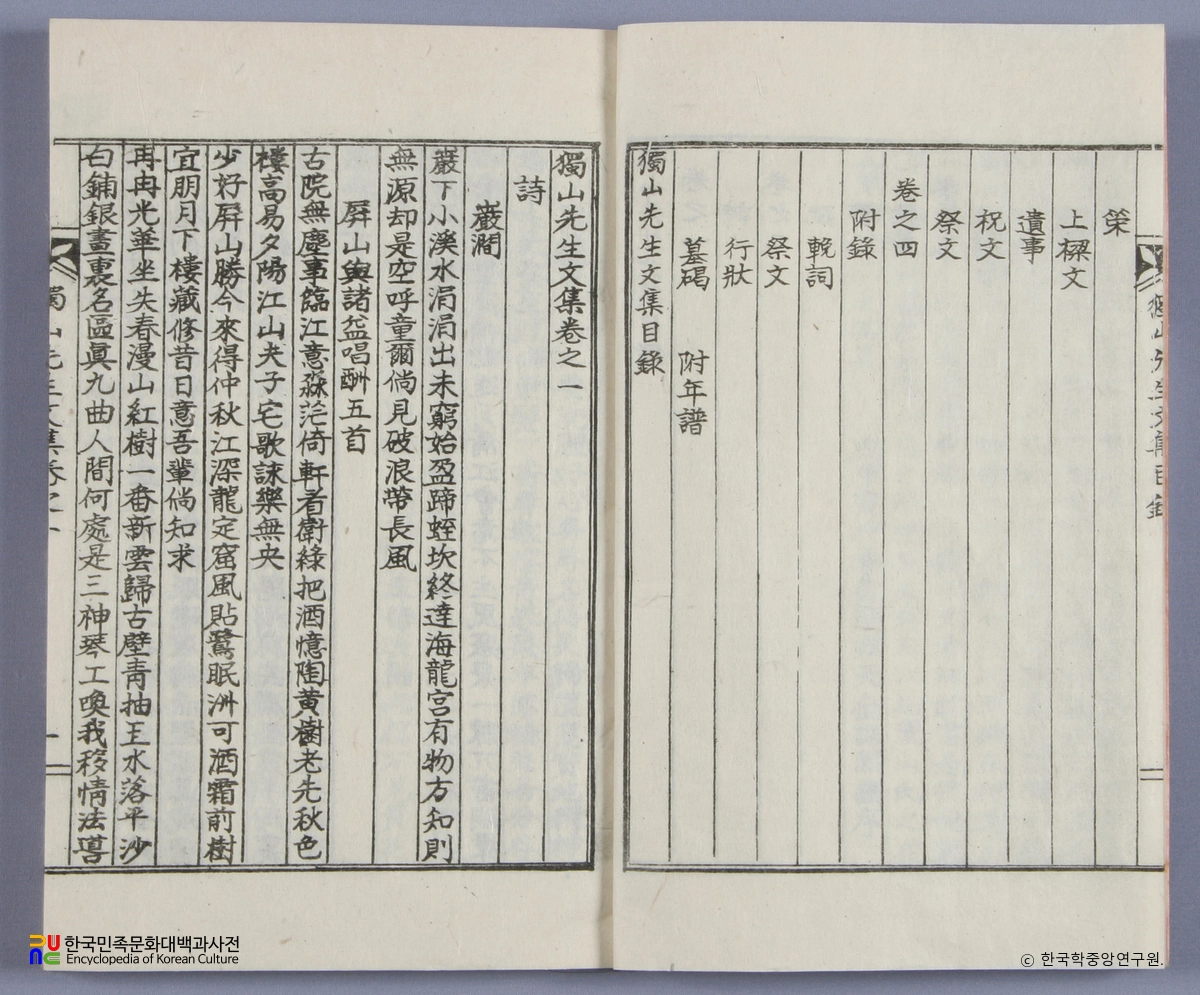 策
上樑文
遺事
祝文
祭文
卷之四
附錄
輓詞
祭文
行狀
墓碣 附年譜
獨山先生文集目錄
獨山先生文集卷之一
詩
巖澗
巖下小溪水涓涓出未窮始盈蹄蛭坎終達海龍宮有物方知則
無源却是空呼童爾倘見破浪帶長風
屛山與諸益唱酬五首
古院無塵事臨江意淼茫倚軒看衛綠把酒憶陶黃樹老先秋色
樓高易夕陽江山夫子宅歌詠樂無央
少好屛山勝今來得仲秋江深龍定窟風貼鷺眠洲可洒霜前樹
宜朋月下樓藏修昔日意吾輩倘知求
冉冉光華坐失春漫山紅樹一番新雲歸古壁靑抽玉水落平沙
白鋪銀畫裏名區眞九曲人間何處是三神琴工喚我移情法導
獨山先生文集卷之一
一
한국민족문화대백과사전
Encyclopedia of Korean Culture
ⓒ 한국학중앙연구원.